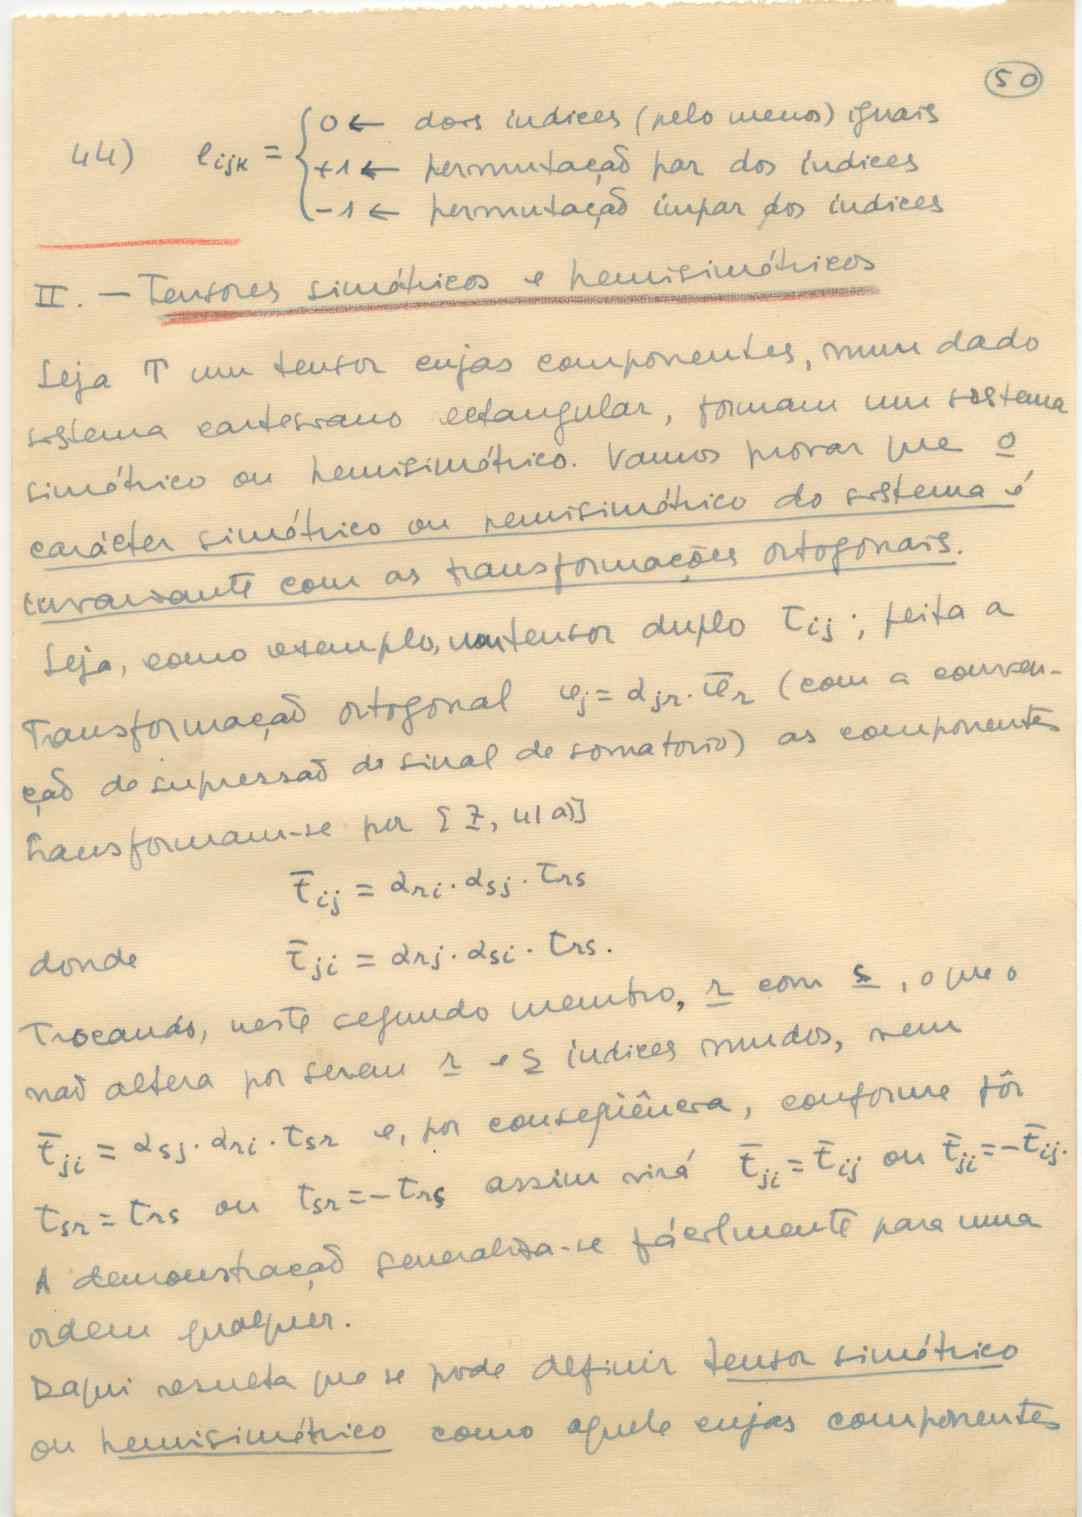 50
44) e_ijk = { 0 ← dois índices (pelo menos) iguais
+1 ← permutação par dos índices
-1 ← permutação ímpar dos índices
II. — Tensores simétricos e hemisimétricos
Seja T um tensor cujas componentes, num dado
sistema cartesiano rectangular, formam um sistema
simétrico ou hemisimétrico. Vamos provar que o
carácter simétrico ou hemisimétrico do sistema é
invariante com as transformações ortogonais.
Seja, como exemplo, um tensor duplo t_ij; feita a
transformação ortogonal e_j = α_jr · ē_r (com a conven-
ção de supressão do sinal de somatório) as componentes
transformam-se por [7, 41a)]
t̄_ij = α_ri · α_sj · t_rs
donde t̄_ji = α_rj · α_si · t_rs.
Trocando, neste segundo membro, r com s, o que o
não altera por serem r e s índices mudos, vem
t̄_ji = α_sj · α_ri · t_sr e, por conseqüência, conforme fôr
t_sr = t_rs ou t_sr = -t_rs assim virá t̄_ji = t̄_ij ou t̄_ji = -t̄_ij.
A demonstração generaliza-se fácilmente para uma
ordem qualquer.
Daqui resulta que se pode definir tensor simétrico
ou hemisimétrico como aquele cujas componentes